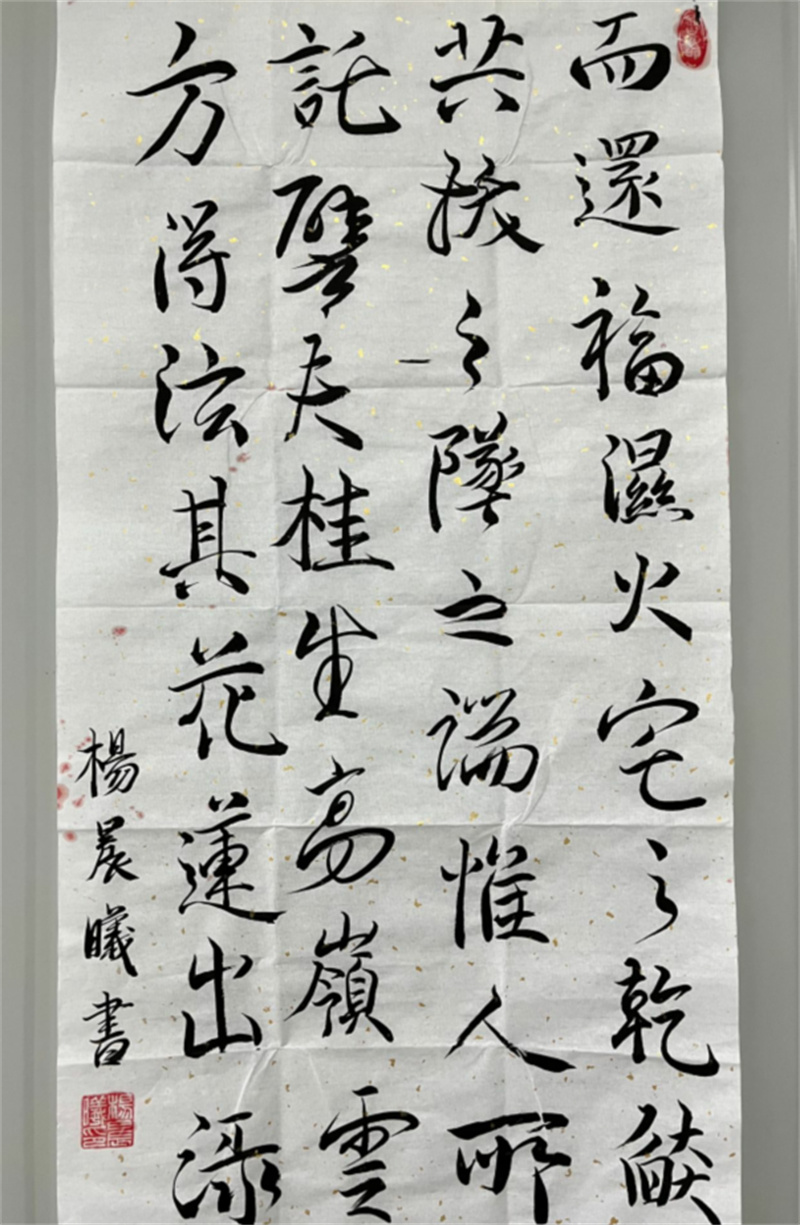 而還福濕火宅之乾燄
共拔之墜之端惟人所
託譬夫桂生高嶺雲
方得泫其花蓮出淥
楊晨曦書